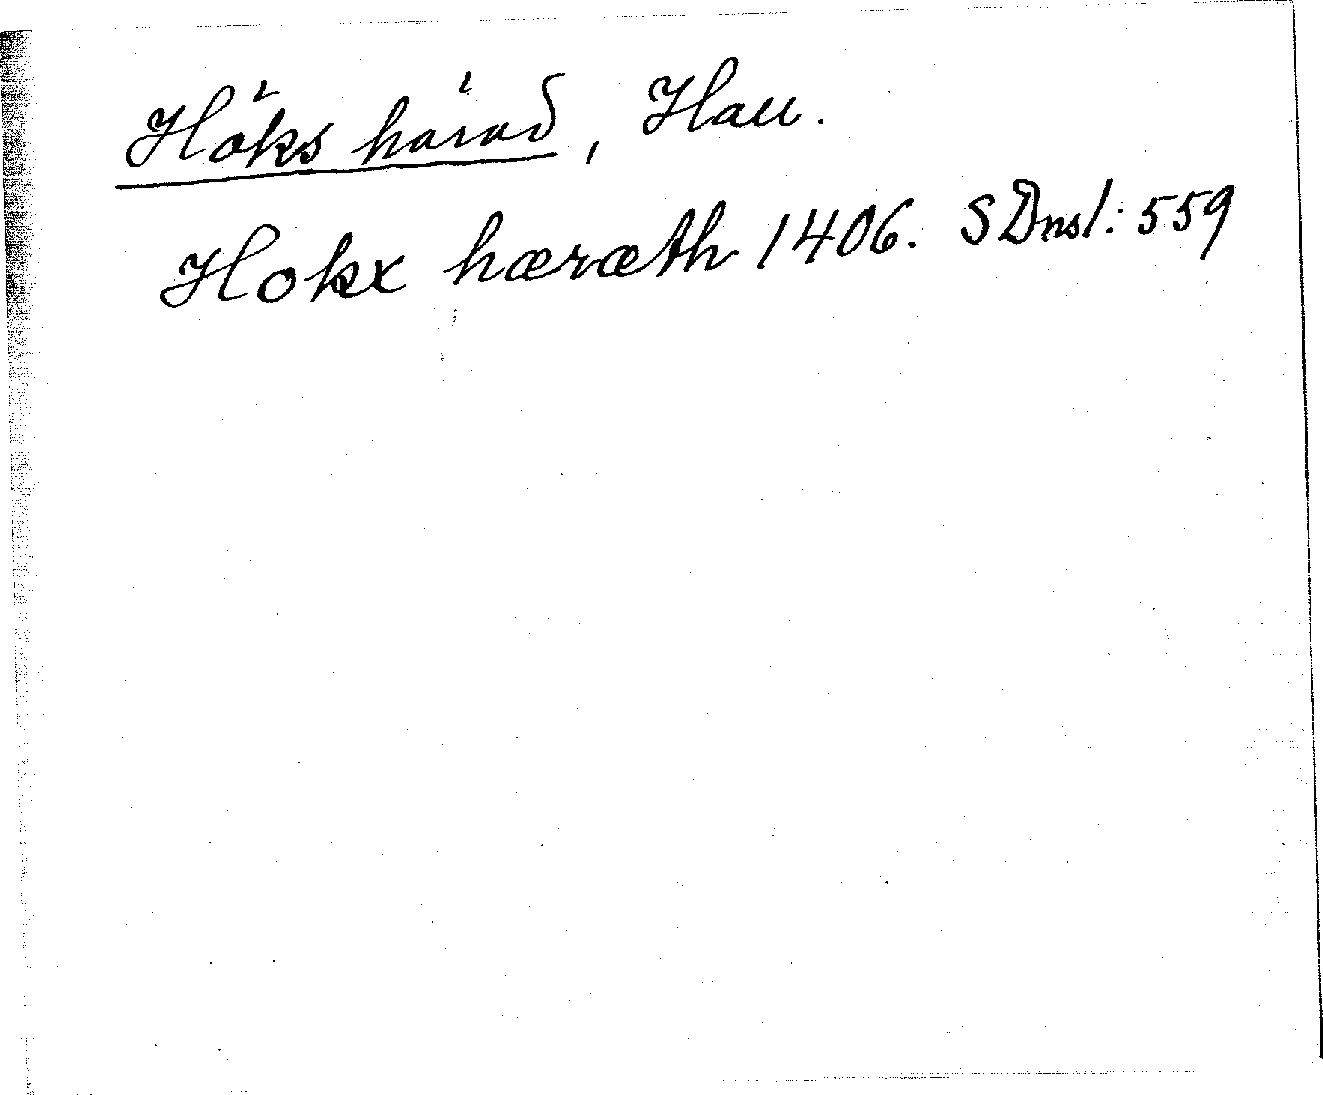 Höks härad, Hall.
Hokx hæræth 1406. SDnsl: 559